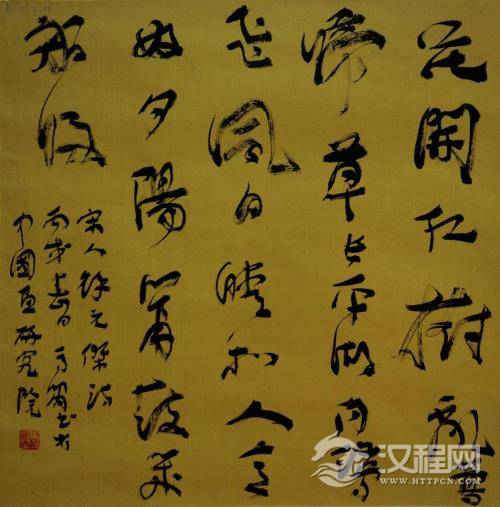 花開红樹亂鶯
啼草长平湖白鹭
飞風日晴和人意
好夕陽簫鼓幾
船归
宋人徐元傑詩
丙戌春日 书於
中國画研究院
汉程网
WWW.HTTPCN.COM